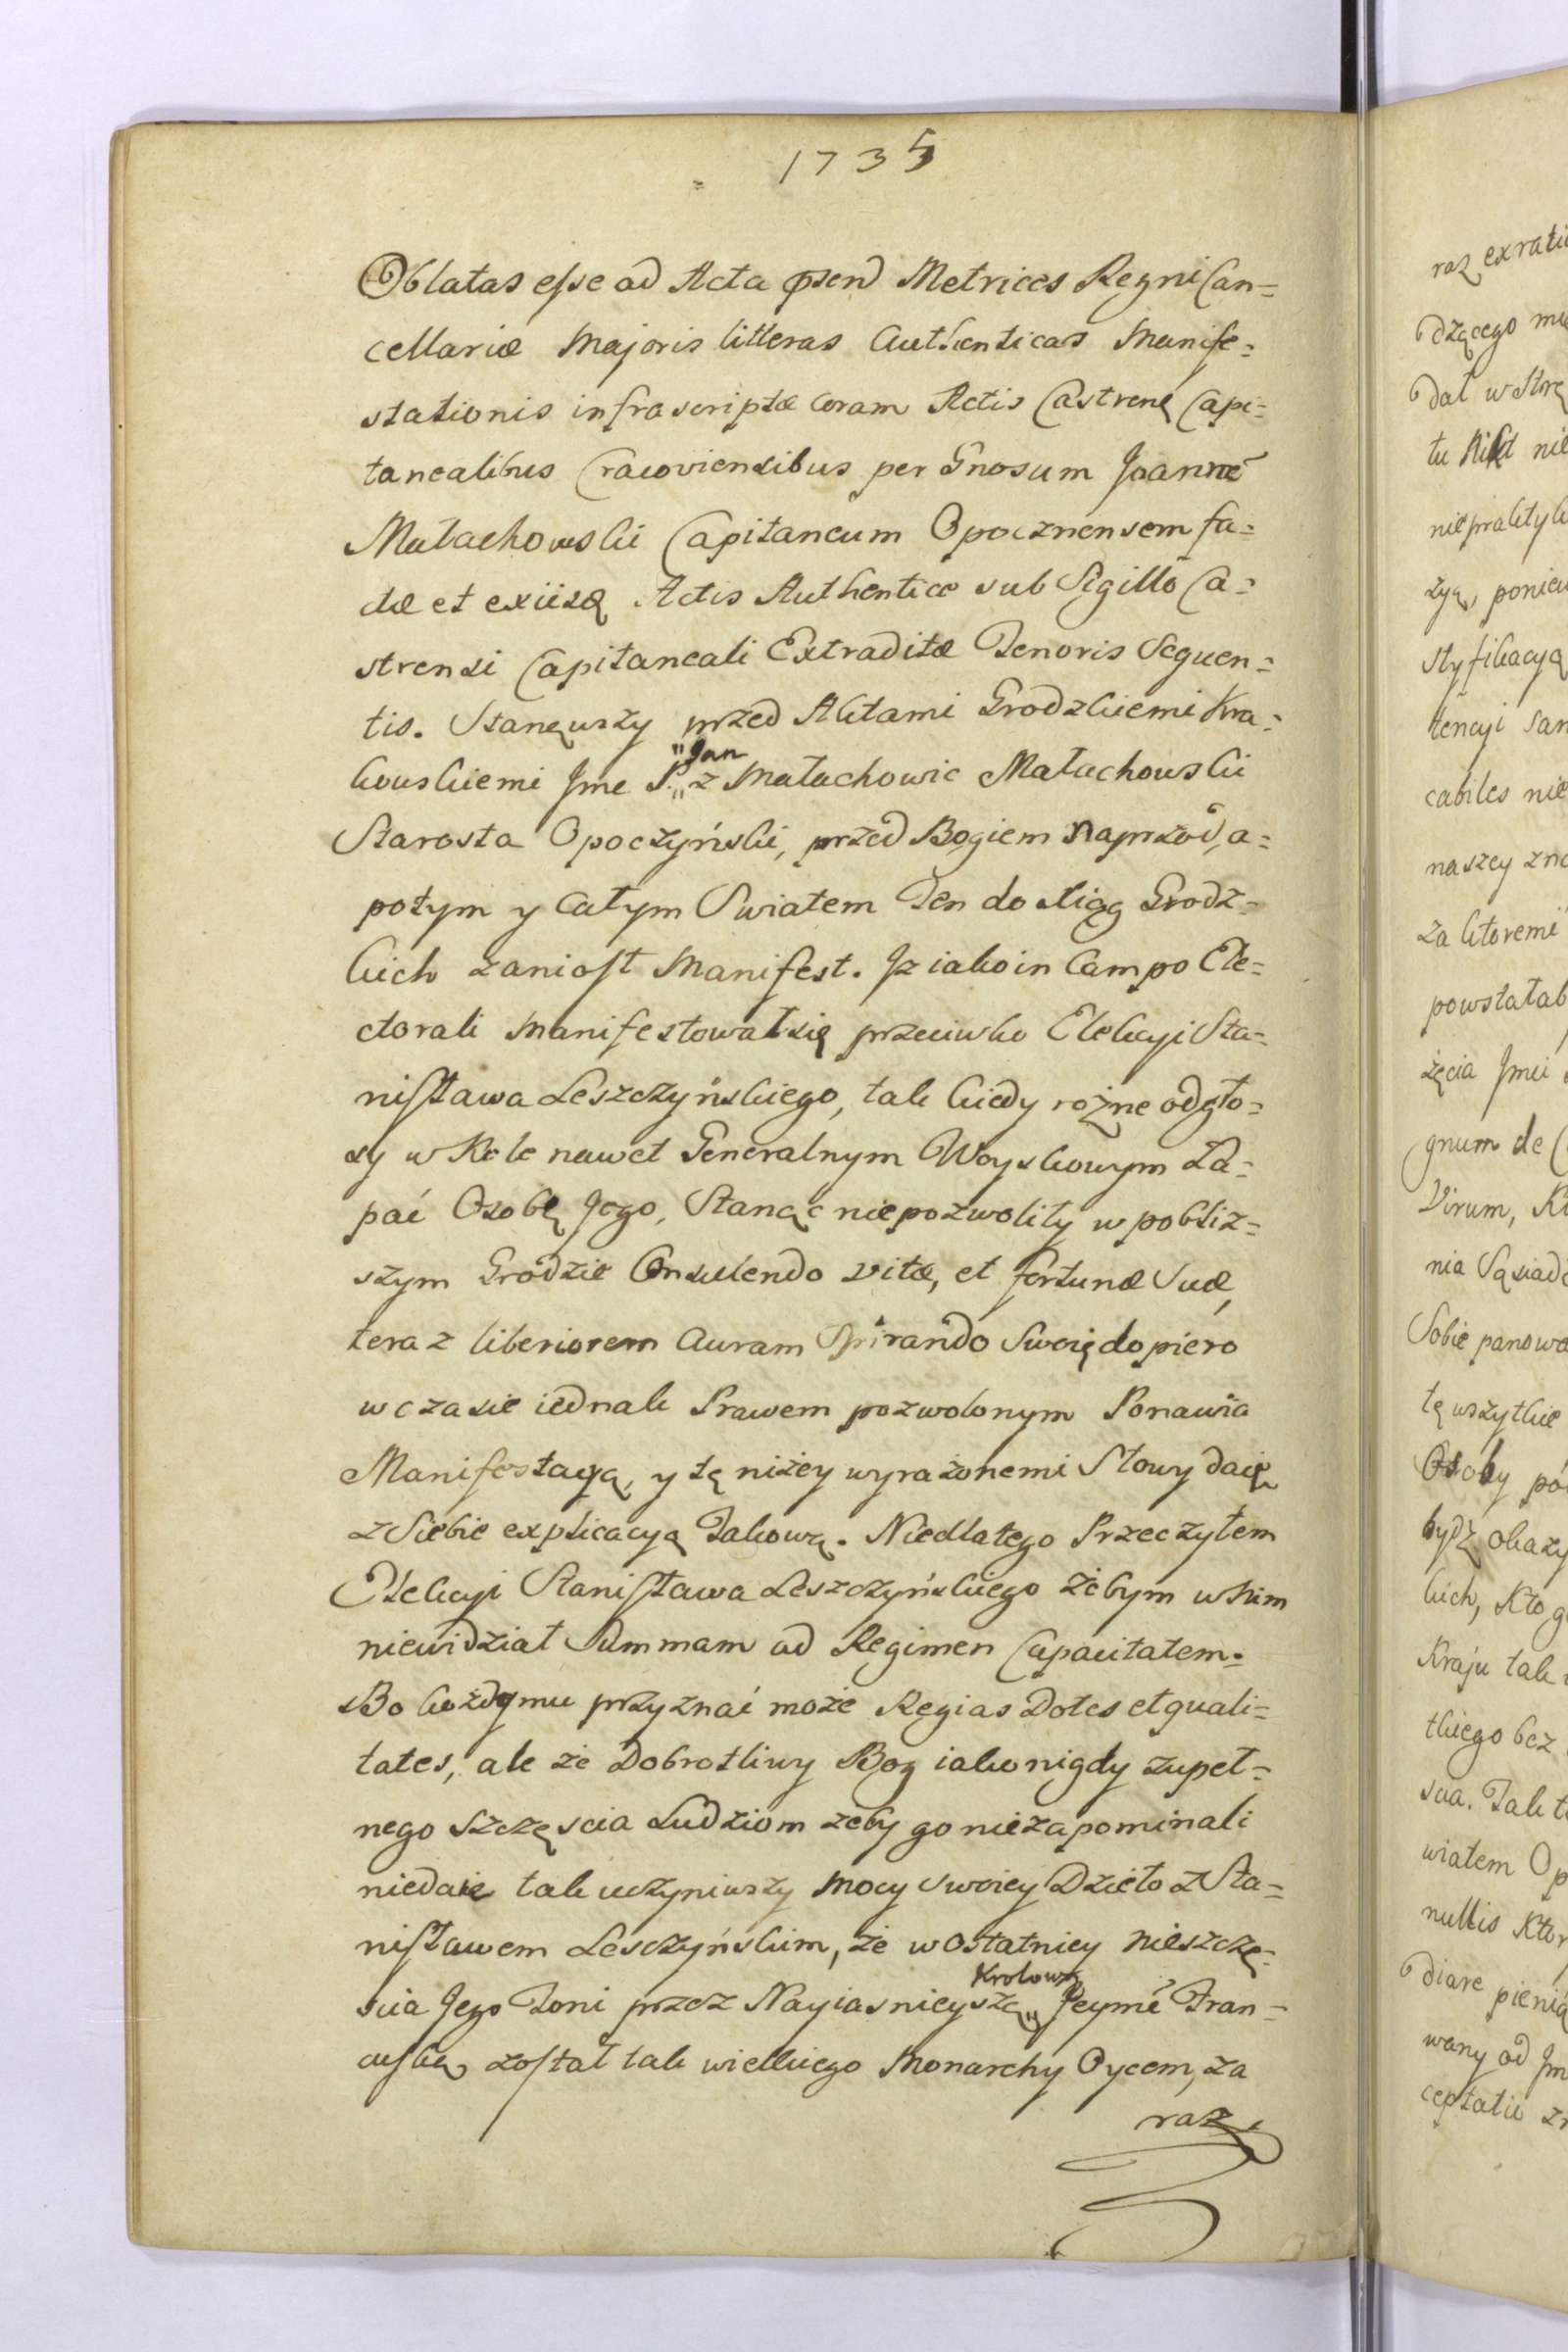 1735
Oblatas esse ad Acta psen Metrices Regni Can=
cellariæ Majoris litteras Authenticas Manife=
stationis infrascriptæ coram Actis Castren Capi=
tanealibus Cracoviensibus per Gnosum Joanné
Małachowski Capitaneum Opocznensem fa=
ctæ et exiisą Actis Authentice sub Sigillo Ca=
strensi Capitaneali Extraditæ Tenoris Sequen=
tis. Stanąwszy przed Aktami Grodzkiemi Kra=
kowskiemi Jmc P. "Jan" z Małachowic Małachowski
Starosta Opoczyński, przed Bogiem Naprzód, a=
potym y całym Swiatem Ten do Xiąg Grodz=
kich zaniosł Manifest. Jz iako in Campo Ele=
ctorali Manifestował się przeciwko Elekcyi Sta=
nisława Leszczyńskiego, tak kiedy rożne odgło=
sy w Kole nawet Generalnym Woyskowym Ła=
pać Osobę Jego, Stanąć niepozwoliły w pobliż=
szym Grodzie Consulendo vitæ, et fortunæ Suæ,
teraz liberiorem Auram Spirando Swoię dopiero
w czasie iednak Prawem pozwolonym Ponawia
Manifestacyą, y tę niżey wyrażonemi Słowy daię
z Siebie explicacyą Takową. Niedlatego Przeczyłem
Elekcyi Stanisława Leszczyńskiego żebym w Nim
niewidział Summam ad Regimen Capacitatem.
Bo każdymu przyznać może Regias Dotes et quali=
tates, ale że Dobrotliwy Bog iako nigdy zupeł=
nego szczęscia Ludziom zeby go niezapominali
niedaie tak uczyniwszy Mocy Swoiey Dzieło z Sta=
nisławem Lesczyńskim, że w ostatniey nieszczę=
scia Jego Toni przez Nayiasnieyszą "Krolową" Jeymć Fran=
cuską został tak wielkiego Monarchy Oycem, za
raz

raz
dzącego
dał w
tu
żyą,
styfikacyą
tencyi
cabiles nie
naszey
za ktoremi
powstałab
żęcia Jmci
gnum de
Virum,
nia
Sobie
tę wszytkie
Osoby
bydź
kich, Kto
Kraju tak
tkiego bez
scia.
wiatem
nullis
diare
wany od
ceptatii